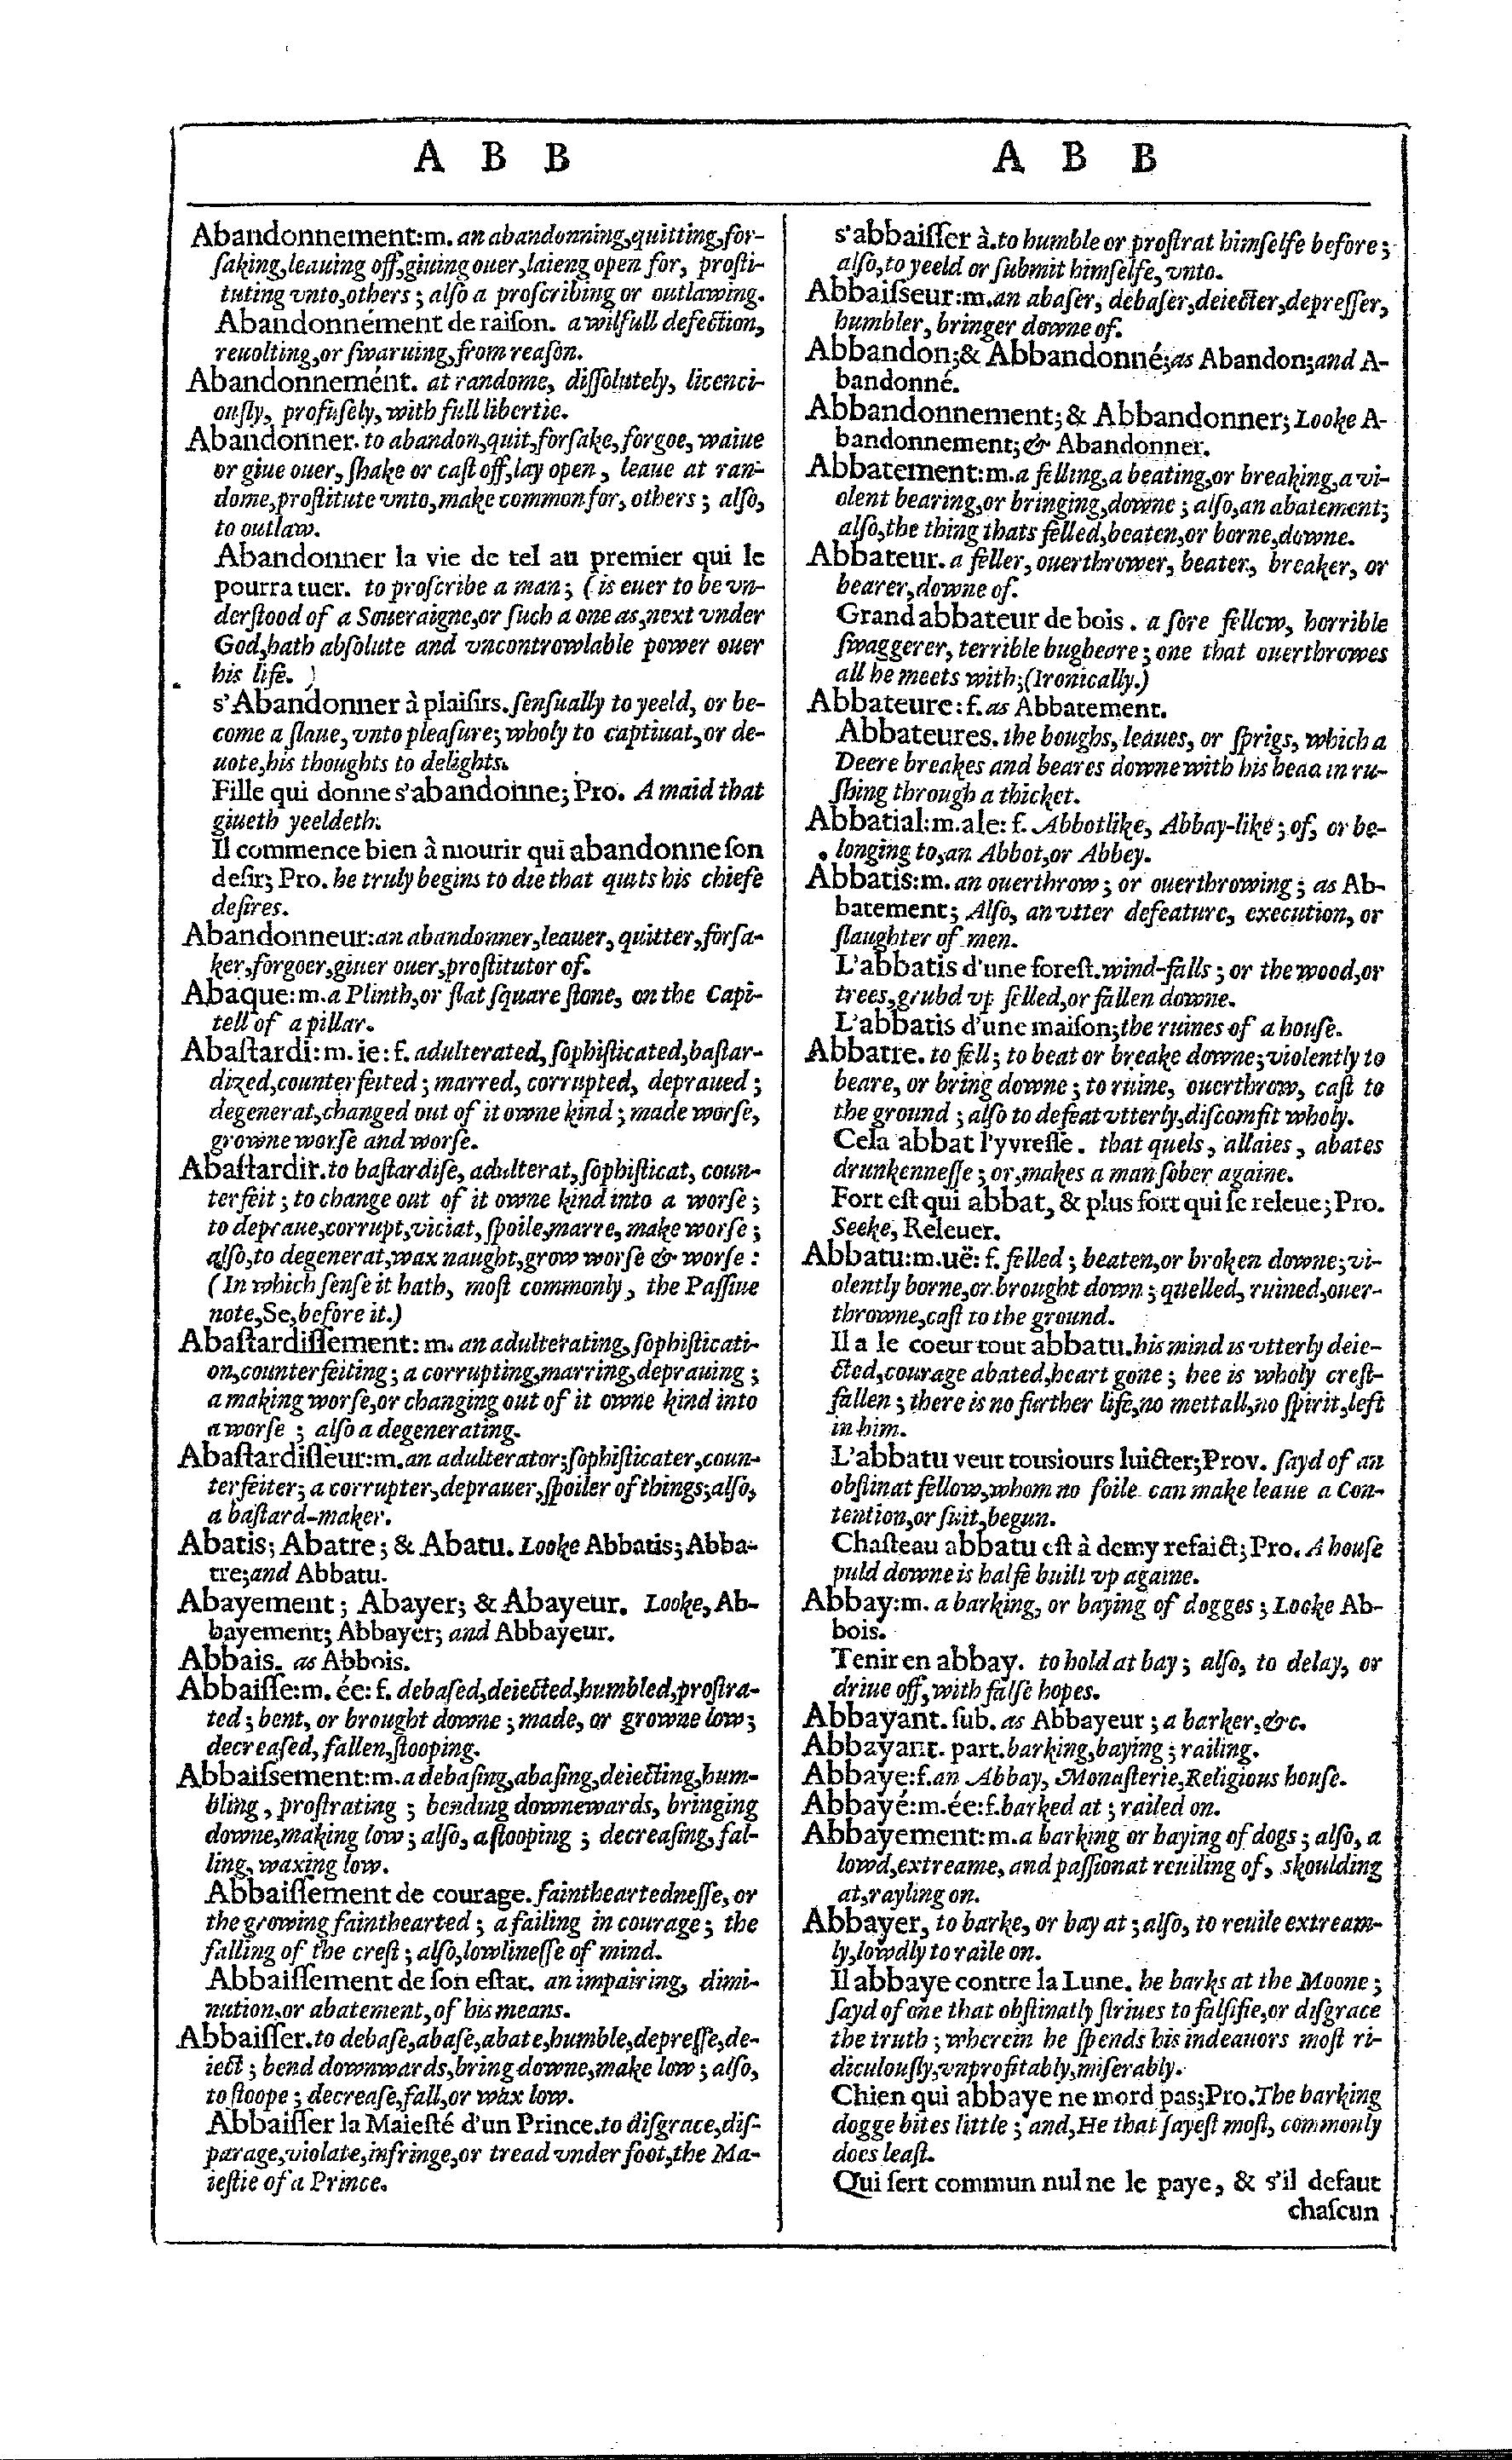 A B B
Abandonnement:m. an abandonning,quitting,for-
ſaking,leauing off,giuing ouer,laieng open for, proſti-
tuting vnto,others ; alſo a proſcribing or outlawing.
Abandonnement de raiſon. a wilfull defection,
reuolting,or ſwaruing,from reaſon.
Abandonnemént. at randome, diſſolutely, licenci-
ouſly, profuſely, with full libertie.
Abandonner. to abandon,quit,forſake,forgoe, waiue
or giue ouer, ſhake or caſt off,lay open, leaue at ran-
dome,proſtitute vnto,make common for, others ; alſo,
to outlaw.
Abandonner la vie de tel au premier qui le
pourra tuer. to proſcribe a man; (is euer to be vn-
derſtood of a Soueraigne,or ſuch a one as,next vnder
God,hath abſolute and vncontrowlable power ouer
his life. )
s'Abandonner à plaiſirs. ſenſually to yeeld, or be-
come a ſlaue, vnto pleaſure; wholy to captiuat,or de-
uote,his thoughts to delights.
Fille qui donne s'abandonne; Pro. A maid that
giueth yeeldeth.
Il commence bien à mourir qui abandonne ſon
deſir; Pro. he truly begins to die that quits his chiefe
deſires.
Abandonneur:an abandonner,leauer, quitter,forſa-
ker,forgoer,giuer ouer,proſtitutor of.
Abaque: m. a Plinth,or flat ſquare ſtone, on the Capi-
tell of a pillar.
Abaſtardi: m. ie: f. adulterated, ſophiſticated,baſtar-
dized,counterfeited ; marred, corrupted, depraued ;
degenerat,changed out of it owne kind ; made worſe,
growne worſe and worſe.
Abaſtardir. to baſtardiſe, adulterat, ſophiſticat, coun-
terfeit ; to change out of it owne kind into a worſe ;
to depraue,corrupt,viciat, ſpoile,marre, make worſe ;
alſo,to degenerat,wax naught,grow worſe & worſe :
(In which ſenſe it hath, moſt commonly, the Paſſiue
note,Se,before it.)
Abaſtardiſſement: m. an adulterating, ſophiſticati-
on,counterfeiting ; a corrupting,marring,deprauing ;
a making worſe,or changing out of it owne kind into
a worſe ; alſo a degenerating.
Abaſtardiſſeur:m. an adulterator;ſophiſticater,coun-
terfeiter; a corrupter,deprauer,ſpoiler of things;alſo,
a baſtard-maker.
Abatis; Abatre ; & Abatu. Looke Abbatis; Abba-
tre;and Abbatu.
Abayement ; Abayer; & Abayeur. Looke, Ab-
bayement; Abbayer; and Abbayeur.
Abbais. as Abbois.
Abbaiſſe:m. ée: f. debaſed,deiected,humbled,proſtra-
ted ; bent, or brought downe ; made, or growne low;
decreaſed, fallen,ſtooping.
Abbaiſsement:m. a debaſing,abaſing,deiecting,hum-
bling, proſtrating ; bending downewards, bringing
downe,making low ; alſo, a ſtooping ; decreaſing, fal-
ling, waxing low.
Abbaiſſement de courage. faintheartedneſſe, or
the growing fainthearted ; a failing in courage; the
falling of the creſt ; alſo,lowlineſſe of mind.
Abbaiſſement de ſon eſtat. an impairing, dimi-
nution,or abatement,of his means.
Abbaiſſer. to debaſe,abaſe,abate,humble,depreſſe,de-
iect ; bend downwards,bring downe,make low ; alſo,
to ſtoope ; decreaſe,fall,or wax low.
Abbaiſſer la Maieſté d'un Prince.to diſgrace,diſ-
parage,violate,infringe,or tread vnder foot,the Ma-
ieſtie of a Prince.
A B B
s'abbaiſſer à.to humble or proſtrat himſelfe before ;
alſo,to yeeld or ſubmit himſelfe, vnto.
Abbaiſseur:m.an abaſer, debaſer,deiecter,depreſſer,
humbler, bringer downe of.
Abbandon;& Abbandonné;as Abandon;and A-
bandonné.
Abbandonnement; & Abbandonner; Looke A-
bandonnement; & Abandonner.
Abbatement: m. a felling,a beating,or breaking,a vi-
olent bearing,or bringing,downe ; alſo,an abatement;
alſo,the thing thats felled,beaten,or borne,downe.
Abbateur. a feller, ouerthrower, beater, breaker, or
bearer,downe of.
Grand abbateur de bois. a ſore fellow, horrible
ſwaggerer, terrible bugbeare ; one that ouerthrowes
all he meets with;(Ironically.)
Abbateure: f. as Abbatement.
Abbateures. the boughs, leaues, or ſprigs, which a
Deere breakes and beares downe with his head in ru-
ſhing through a thicket.
Abbatial:m.ale: f. Abbotlike, Abbay-like ; of, or be-
longing to,an Abbot,or Abbey.
Abbatis:m. an ouerthrow ; or ouerthrowing ; as Ab-
batement; Alſo, an vtter defeature, execution, or
ſlaughter of men.
L'abbatis d'une foreſt.wind-falls ; or the wood,or
trees,grubd vp felled,or fallen downe.
L'abbatis d'une maiſon;the ruines of a houſe.
Abbatre. to fell; to beat or breake downe;violently to
beare, or bring downe ; to ruine, ouerthrow, caſt to
the ground ; alſo to defeat vtterly,diſcomfit wholy.
Cela abbat l'yvreſſe. that quels, allaies, abates
drunkenneſſe ; or,makes a man ſober againe.
Fort eſt qui abbat, & plus fort qui ſe releue; Pro.
Seeke, Releuer.
Abbatu:m.uë: f. felled ; beaten,or broken downe;vi-
olently borne,or brought down ; quelled, ruined,ouer-
throwne,caſt to the ground.
Il a le coeur tout abbatu.his mind is vtterly deie-
cted,courage abated,heart gone ; hee is wholy creſt-
fallen ; there is no further life,no mettall,no ſpirit,left
in him.
L'abbatu veut touſiours luicter;Prov. ſayd of an
obſtinat fellow,whom no foile can make leaue a Con-
tention,or ſuit,begun.
Chaſteau abbatu eſt à demy refaict; Pro. A houſe
puld downe is halfe built vp againe.
Abbay:m. a barking, or baying of dogges ; Looke Ab-
bois.
Tenir en abbay. to hold at bay ; alſo, to delay, or
driue off, with falſe hopes.
Abbayant. ſub. as Abbayeur ; a barker,&c.
Abbayant. part. barking,baying ; railing.
Abbaye:f.an Abbay, Monaſterie,Religious houſe.
Abbayé:m.ée:f.barked at ; railed on.
Abbayement: m. a barking or baying of dogs ; alſo, a
lowd,extreame, and paſſionat reuiling of, skoulding
at,rayling on.
Abbayer, to barke, or bay at ; alſo, to reuile extream-
ly,lowdly to raile on.
Il abbaye contre la Lune. he barks at the Moone ;
ſayd of one that obſtinatly ſtriues to falſifie,or diſgrace
the truth ; wherein he ſpends his indeauors moſt ri-
diculouſly,vnprofitably,miſerably.
Chien qui abbaye ne mord pas;Pro.The barking
dogge bites little ; and,He that ſayeſt moſt, commonly
does leaſt.
Qui ſert commun nul ne le paye, & s'il defaut
chaſcun